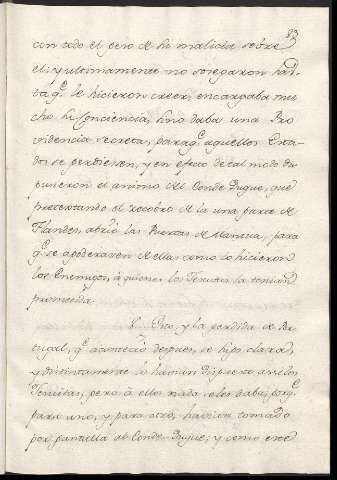 83
con todo el peso de su malicia sobre
el: y ultimamente no sosegaron has-
ta q.e le hicieron creer, encargaba mu-
cho su Conciencia, sino daba una Pro
videncia secreta, para q.e aquellos Esta-
dos se perdiesen, y en efecto de tal modo dis
pusieron el animo del Conde Duque, que
pretextando el recobro de la una parte de
Flandes, abrio las Puertas de Mantua, para
q.e se apoderasen de ellas como lo hicieron
los Enemigos, á quienes los Jesuitas la tenian
prometida.
8. Esto, y la perdida de Por
tugal, q.e aconteció despues, se hizo claro,
y distintamente lo havian dispuesto aquellos
Jesuitas, pero á ellos nada se les daba, porq.e
para uno, y para otro, havian tomado
por pantalla al Conde Duque; y como este